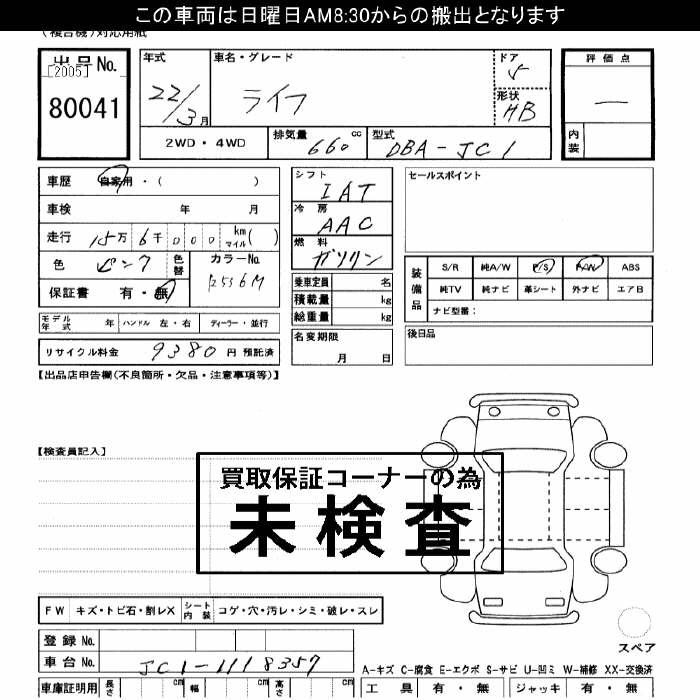 この車両は日曜日AM8:30からの搬出となります
(複合機)対応用紙
出品No. [2005] 80041
年式 22/3月
車名・グレード ライフ
ドア 5
形状 HB
評価点 —
内装
2WD・4WD 排気量 660 cc 型式 DBA-JC1
車歴 自家用・( )
車検 年 月
走行 15万 6千 0 0 0 km マイル( )
色 ピンク 色替 カラーNo. R556M
保証書 有・無
モデル年式 年 ハンドル 左・右 ディーラー・並行
リサイクル料金 9380 円 預託済
シフト IAT
冷房 AAC
燃料 ガソリン
乗車定員 名
積載量 kg
総重量 kg
名変期限 月 日
セールスポイント
装備品 S/R 純A/W P/S P/W ABS
純TV 純ナビ 革シート 外ナビ エアB
ナビ型番:
後日品
【出品店申告欄(不良箇所・欠品・注意事項等)】
【検査員記入】
買取保証コーナーの為
未検査
FW キズ・トビ石・割レX シート内装 コゲ・穴・汚レ・シミ・破レ・スレ
スペア
登録No.
車台No. JC1-1118357
A-キズ C-腐食 E-エクボ S-サビ U-凹ミ W-補修 XX-交換済
車庫証明用 長さ cm 幅 cm 高さ cm
工具 有・無 ジャッキ 有・無